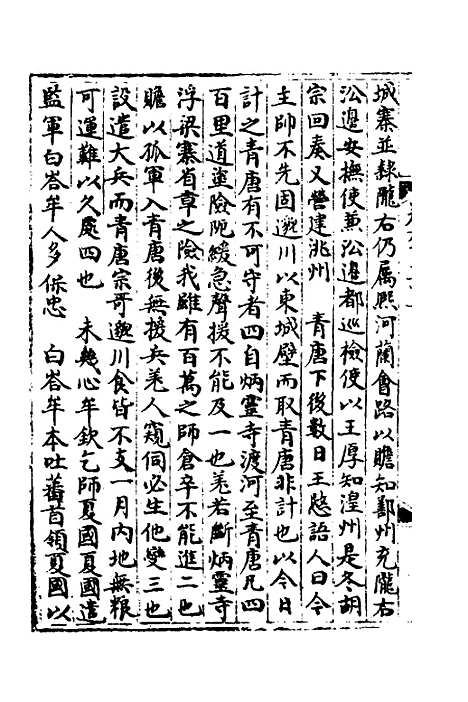 城寨並隸隴右仍属熙河蘭會路以贍知鄯州充隴右
沿邊安撫使兼沿邊都巡檢使以王厚知湟州是冬胡
宗回奏又營建洮州　青唐下後數日王愍語人曰今
主帥不先固邈川以東城壁而取青唐非計也以今日
計之青唐有不可守者四自炳靈寺渡河至青唐凡四
百里道遠險阨緩急聲援不能及一也羌若斷炳靈寺
浮梁塞省章之險我雖有百萬之師倉卒不能進二也
贍以孤軍入青唐後無援兵羌人窺伺必生他變三也
設遣大兵而青唐宗哥邈川食皆不支一月內地無粮
可運難以久處四也　未幾心牟欽乞師夏國夏國遣
監軍白峇牟人多保忠　白峇牟本吐蕃首領夏國以